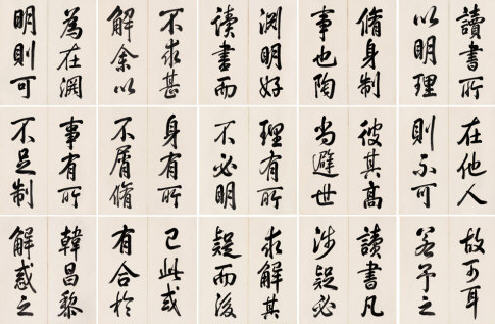 讀書所
以明理
脩身制
事也陶
渊明好
读書而
不求甚
解余以
為在渊
明則可
在他人
則不可
彼其高
尚避世
理有所
不必明
身有所
不屑脩
事有所
不足制
故可耳
若予之
讀書凡
涉疑必
求解其
疑而後
已此或
有合於
韓昌黎
解惑之